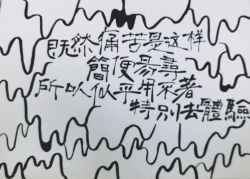 既然痛苦是这样
簡便易尋
所以似乎用不著
特別去體驗